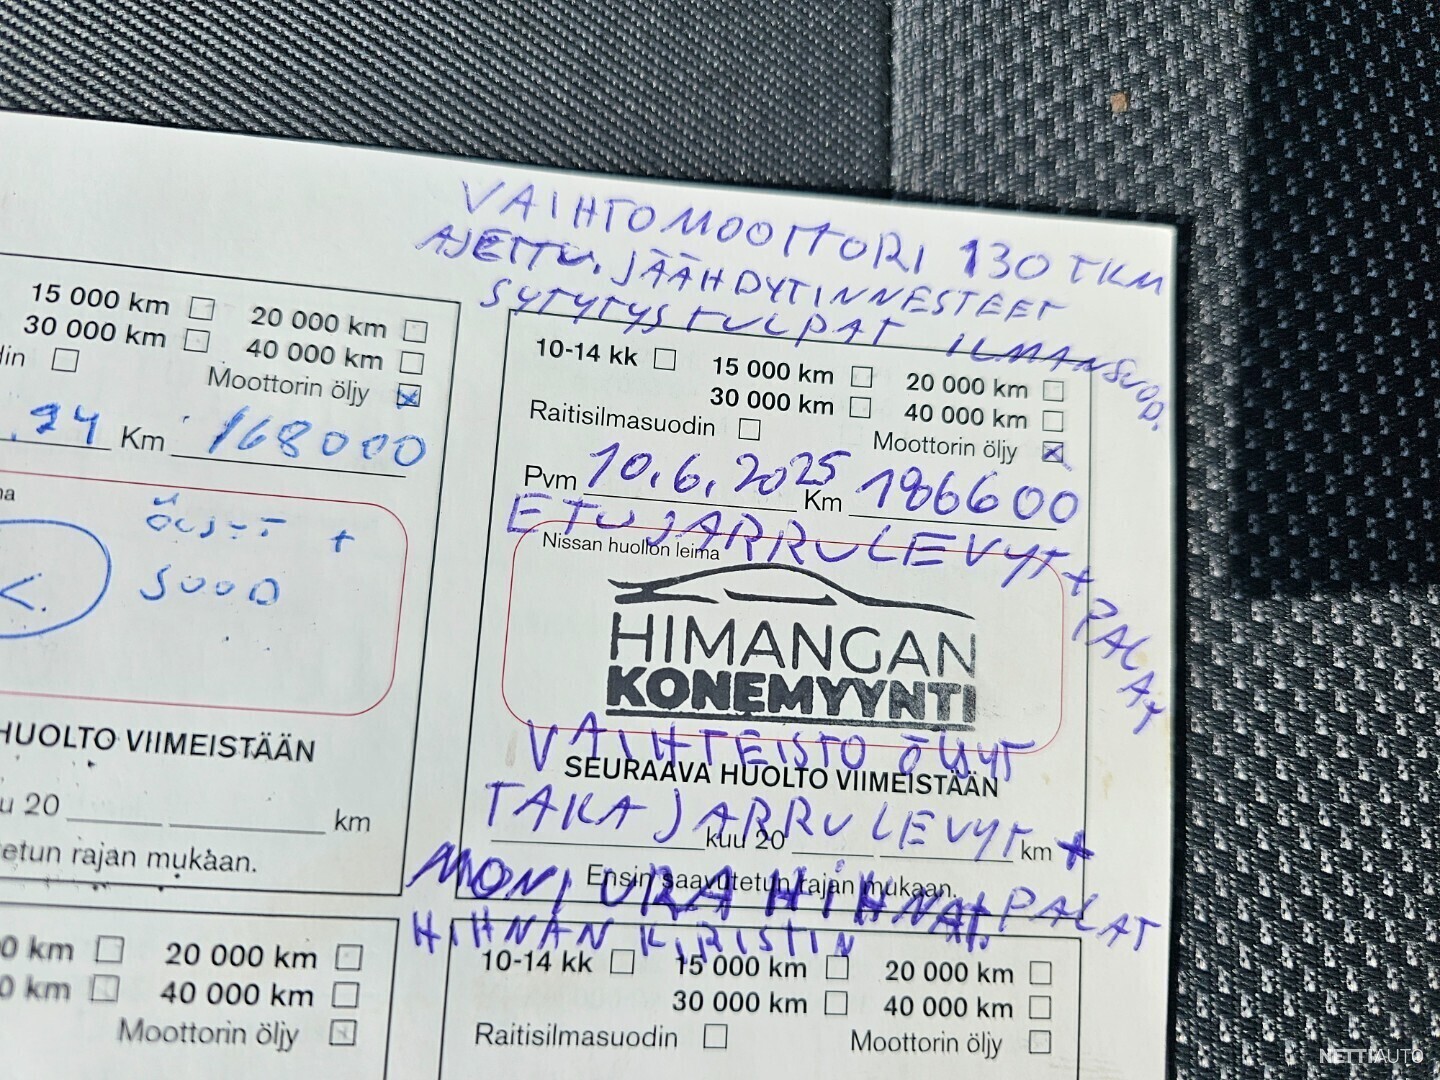 VAIHTOMOOTTORI 130 TKM
AJETTU, JÄÄHDYTINNESTEET
SYTYTYSTULPAT ILMANSUOD.
15 000 km 20 000 km
30 000 km 40 000 km
din
Moottorin öljy
.24 Km 168000
na
ÖLJYT +
SUOD
HUOLTO VIIMEISTÄÄN
u 20 km
etun rajan mukaan.
10-14 kk 15 000 km 20 000 km
30 000 km 40 000 km
Raitisilmasuodin Moottorin öljy
Pvm 10.6.2025 Km 186600
ETUJARRULEVYT + PALAT
Nissan huollon leima
HIMANGAN
KONEMYYNTI
VAIHTEISTO ÖLJYT
SEURAAVA HUOLTO VIIMEISTÄÄN
TAKAJARRULEVYT +
kuu 20 km
PALAT
Ensin saavutetun rajan mukaan.
MONIURAHIHNA +
HIHNAN KIRISTIN
0 km 20 000 km
0 km 40 000 km
Moottorin öljy
10-14 kk 15 000 km 20 000 km
30 000 km 40 000 km
Raitisilmasuodin Moottorin öljy
NETTIAUTO